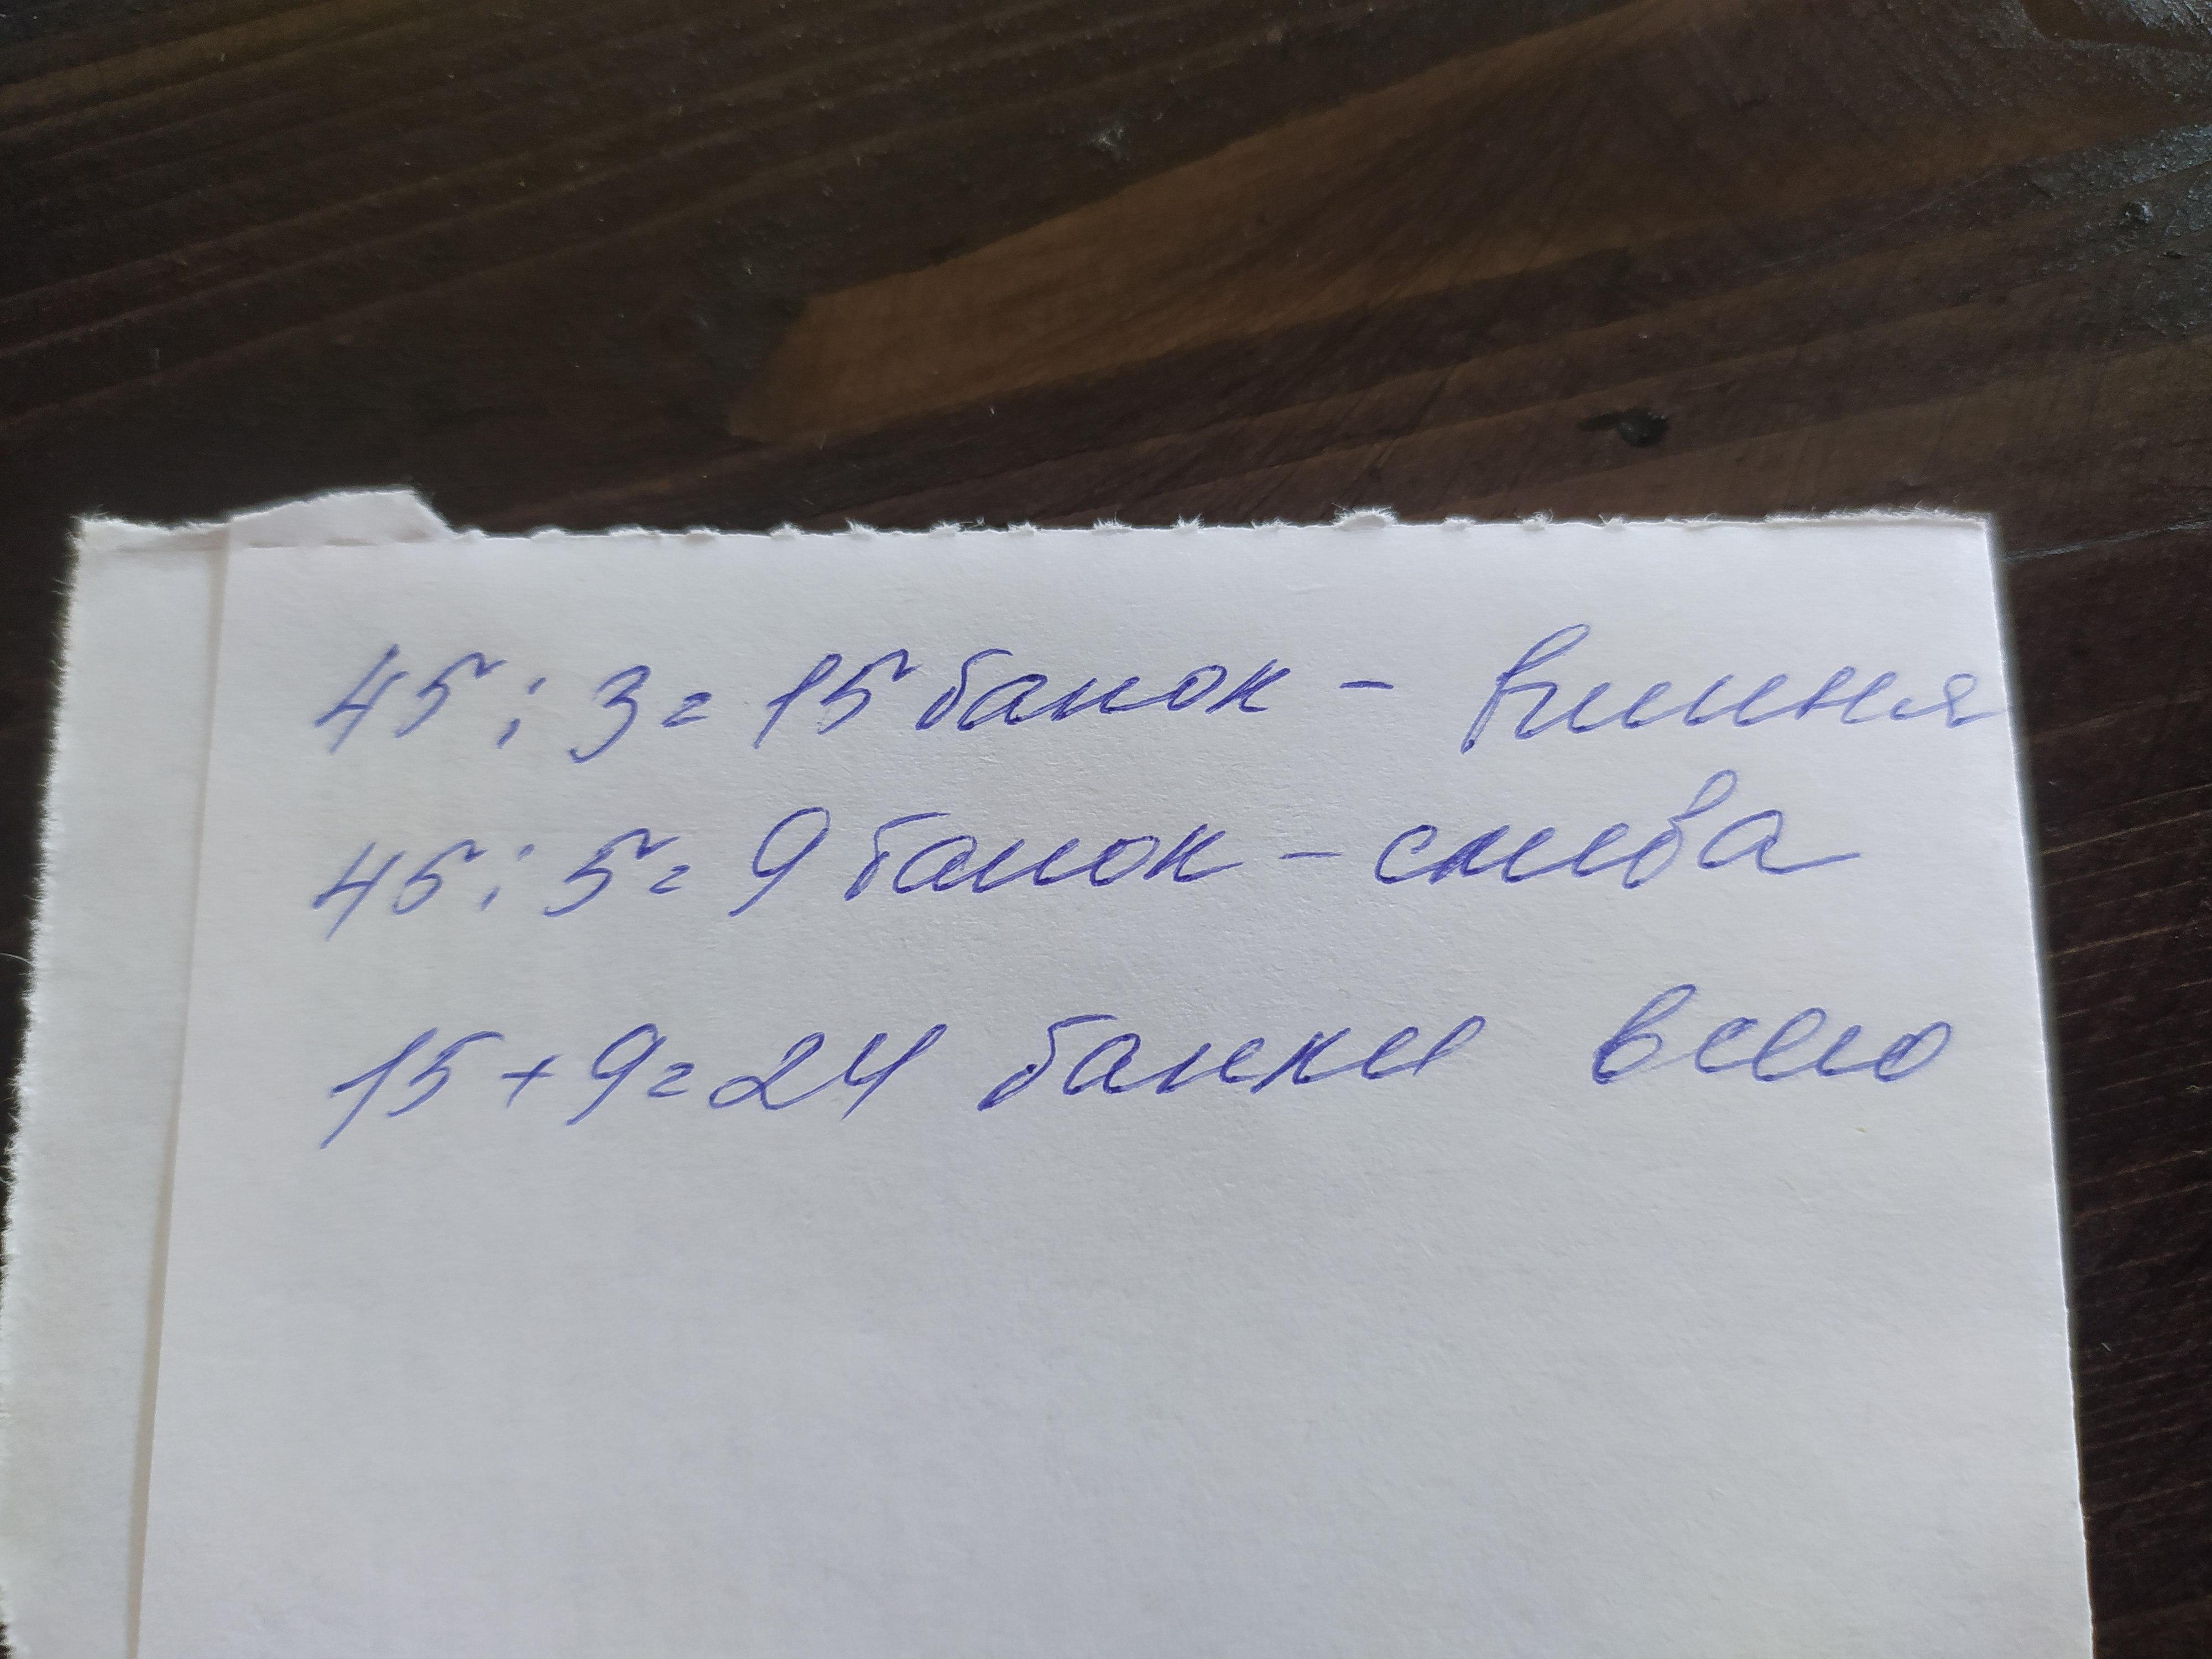 45 : 3 = 15 банок - вишня
45 : 5 = 9 банок - слива
15 + 9 = 24 банки всего